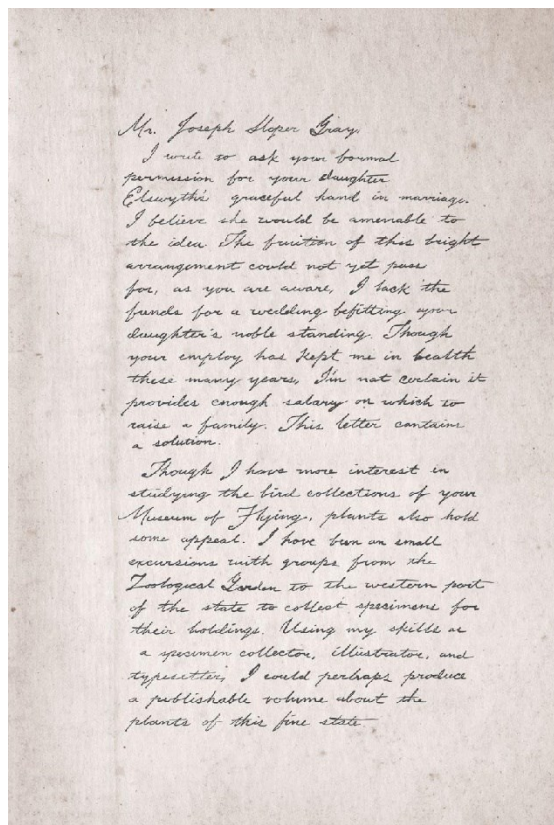 Mr. Joseph Sloper Gray,
I write to ask your formal
permission for your daughter
Elswyth's graceful hand in marriage.
I believe she would be amenable to
the idea. The fruition of this bright
arrangement could not yet pass
for, as you are aware, I lack the
funds for a wedding befitting your
daughter's noble standing. Though
your employ has kept me in health
these many years, I'm not certain it
provides enough salary on which to
raise a family. This letter contains
a solution.
Though I have more interest in
studying the bird collections of your
Museum of Flying, plants also hold
some appeal. I have been on small
excursions with groups from the
Zoological Garden to the western part
of the state to collect specimens for
their holdings. Using my skills as
a specimen collector, illustrator, and
typesetter, I could perhaps produce
a publishable volume about the
plants of this fine state